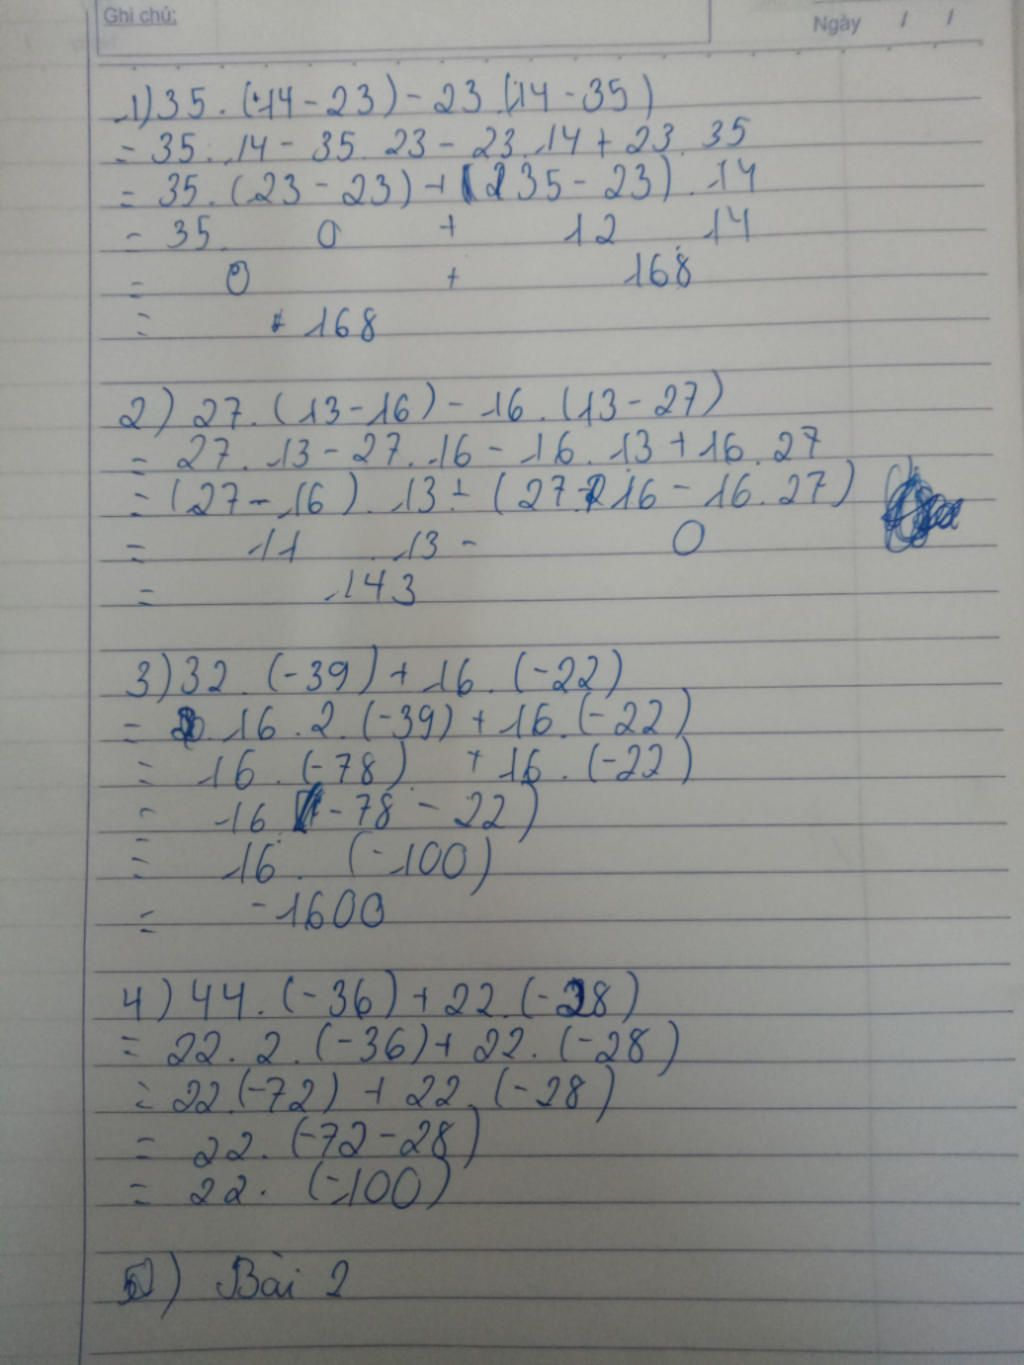 Ghi chú:
Ngày / /
1) 35 . (14 - 23) - 23 . (14 - 35)
= 35 . 14 - 35 . 23 - 23 . 14 + 23 . 35
= 35 . (23 - 23) + (35 - 23) . 14
= 35 . 0 + 12 14
= 0 + 168
= 168
2) 27 . (13 - 16) - 16 . (13 - 27)
= 27 . 13 - 27 . 16 - 16 . 13 + 16 . 27
= (27 - 16) . 13 - (27 . 16 - 16 . 27)
= 11 . 13 - 0
= 143
3) 32 . (-39) + 16 . (-22)
= 16 . 2 . (-39) + 16 . (-22)
= 16 . (-78) + 16 . (-22)
= 16 (-78 - 22)
= 16 . (-100)
= -1600
4) 44 . (-36) + 22 . (-28)
= 22 . 2 . (-36) + 22 . (-28)
= 22 . (-72) + 22 . (-28)
= 22 . (-72 - 28)
= 22 . (-100)
) Bài 2